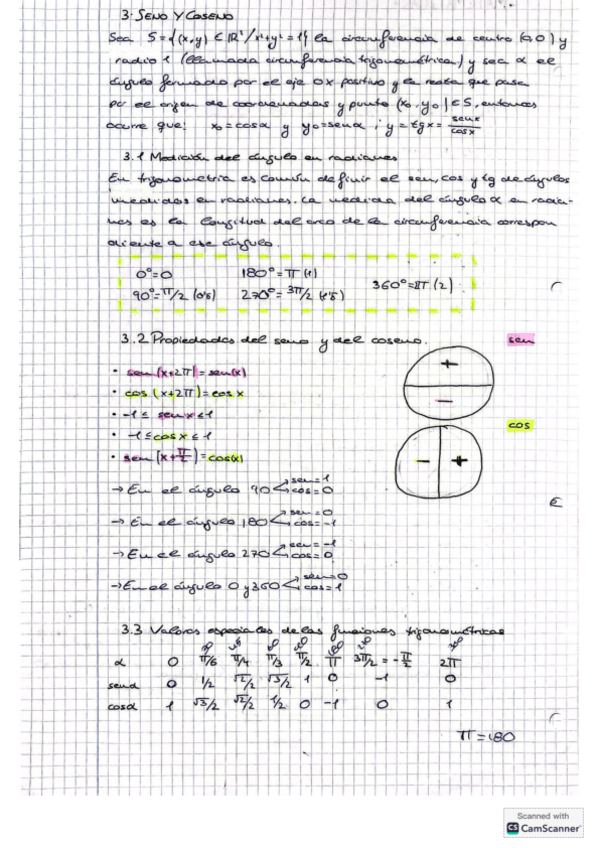 3. SENO Y COSENO
Sea S={(x,y) ∈ ℝ²/x²+y²=1} la circunferencia de centro (0,0) y
radio 1 (llamada circunferencia trigonométrica) y sea α el
ángulo formado por el eje OX positivo y la recta que pasa
por el origen de coordenadas y punto (x₀,y₀) ∈ S, entonces
ocurre que: x₀=cosα y y₀=senα ; y=tgx= senx/cosx
3.1 Medición del ángulo en radianes
En trigonometría es común definir el sen, cos y tg de ángulos
medidos en radianes. La medida del ángulo α en radia-
nes es la longitud del arco de la circunferencia correspon
diente a ese ángulo.
0°=0 180°=π (1) 360°=2π (2)
90°=π/2 (0'5) 270°=3π/2 (1'5)
3.2 Propiedades del seno y del coseno.
sen
+
−
• sen(x+2π)=sen(x)
• cos(x+2π)=cosx
• -1≤ senx≤1
• -1≤cosx≤1
• sen(x+π/2)=cos(x)
cos
− +
→ En el ángulo 90 sen=1 cos=0
→ En el ángulo 180 sen=0 cos=-1
→ En el ángulo 270 sen=-1 cos=0
→ En el ángulo 0 y 360 sen=0 cos=1
3.3 Valores especiales de las funciones trigonométricas
30 45 60 90 180 270 360
α 0 π/6 π/4 π/3 π/2 π 3π/2=-π/2 2π
senα 0 1/2 √2/2 √3/2 1 0 -1 0
cosα 1 √3/2 √2/2 1/2 0 -1 0 1
π=180
Scanned with
CS CamScanner